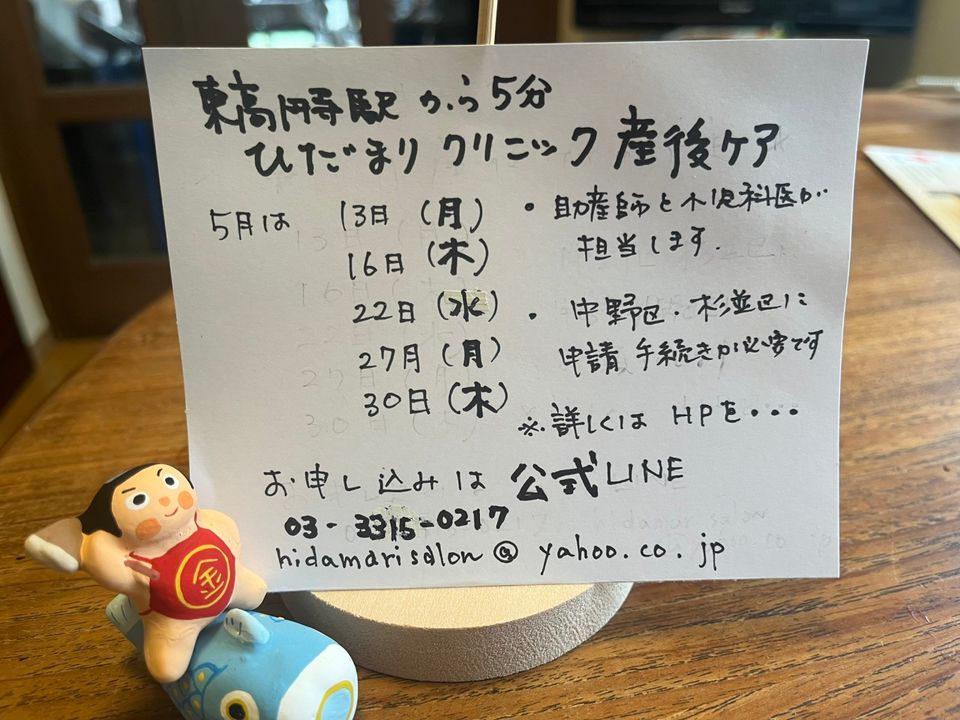 東高円寺駅から5分
ひだまりクリニック 産後ケア
5月は 13日(月)
16日(木)
22日(水)
27月(月)
30日(木)
・助産師と小児科医が
担当します.
・中野区・杉並区に
申請手続きが必要です
※詳しくは HPを・・・
お申し込みは 公式LINE
03-3315-0217
hidamarisalon@yahoo.co.jp
金